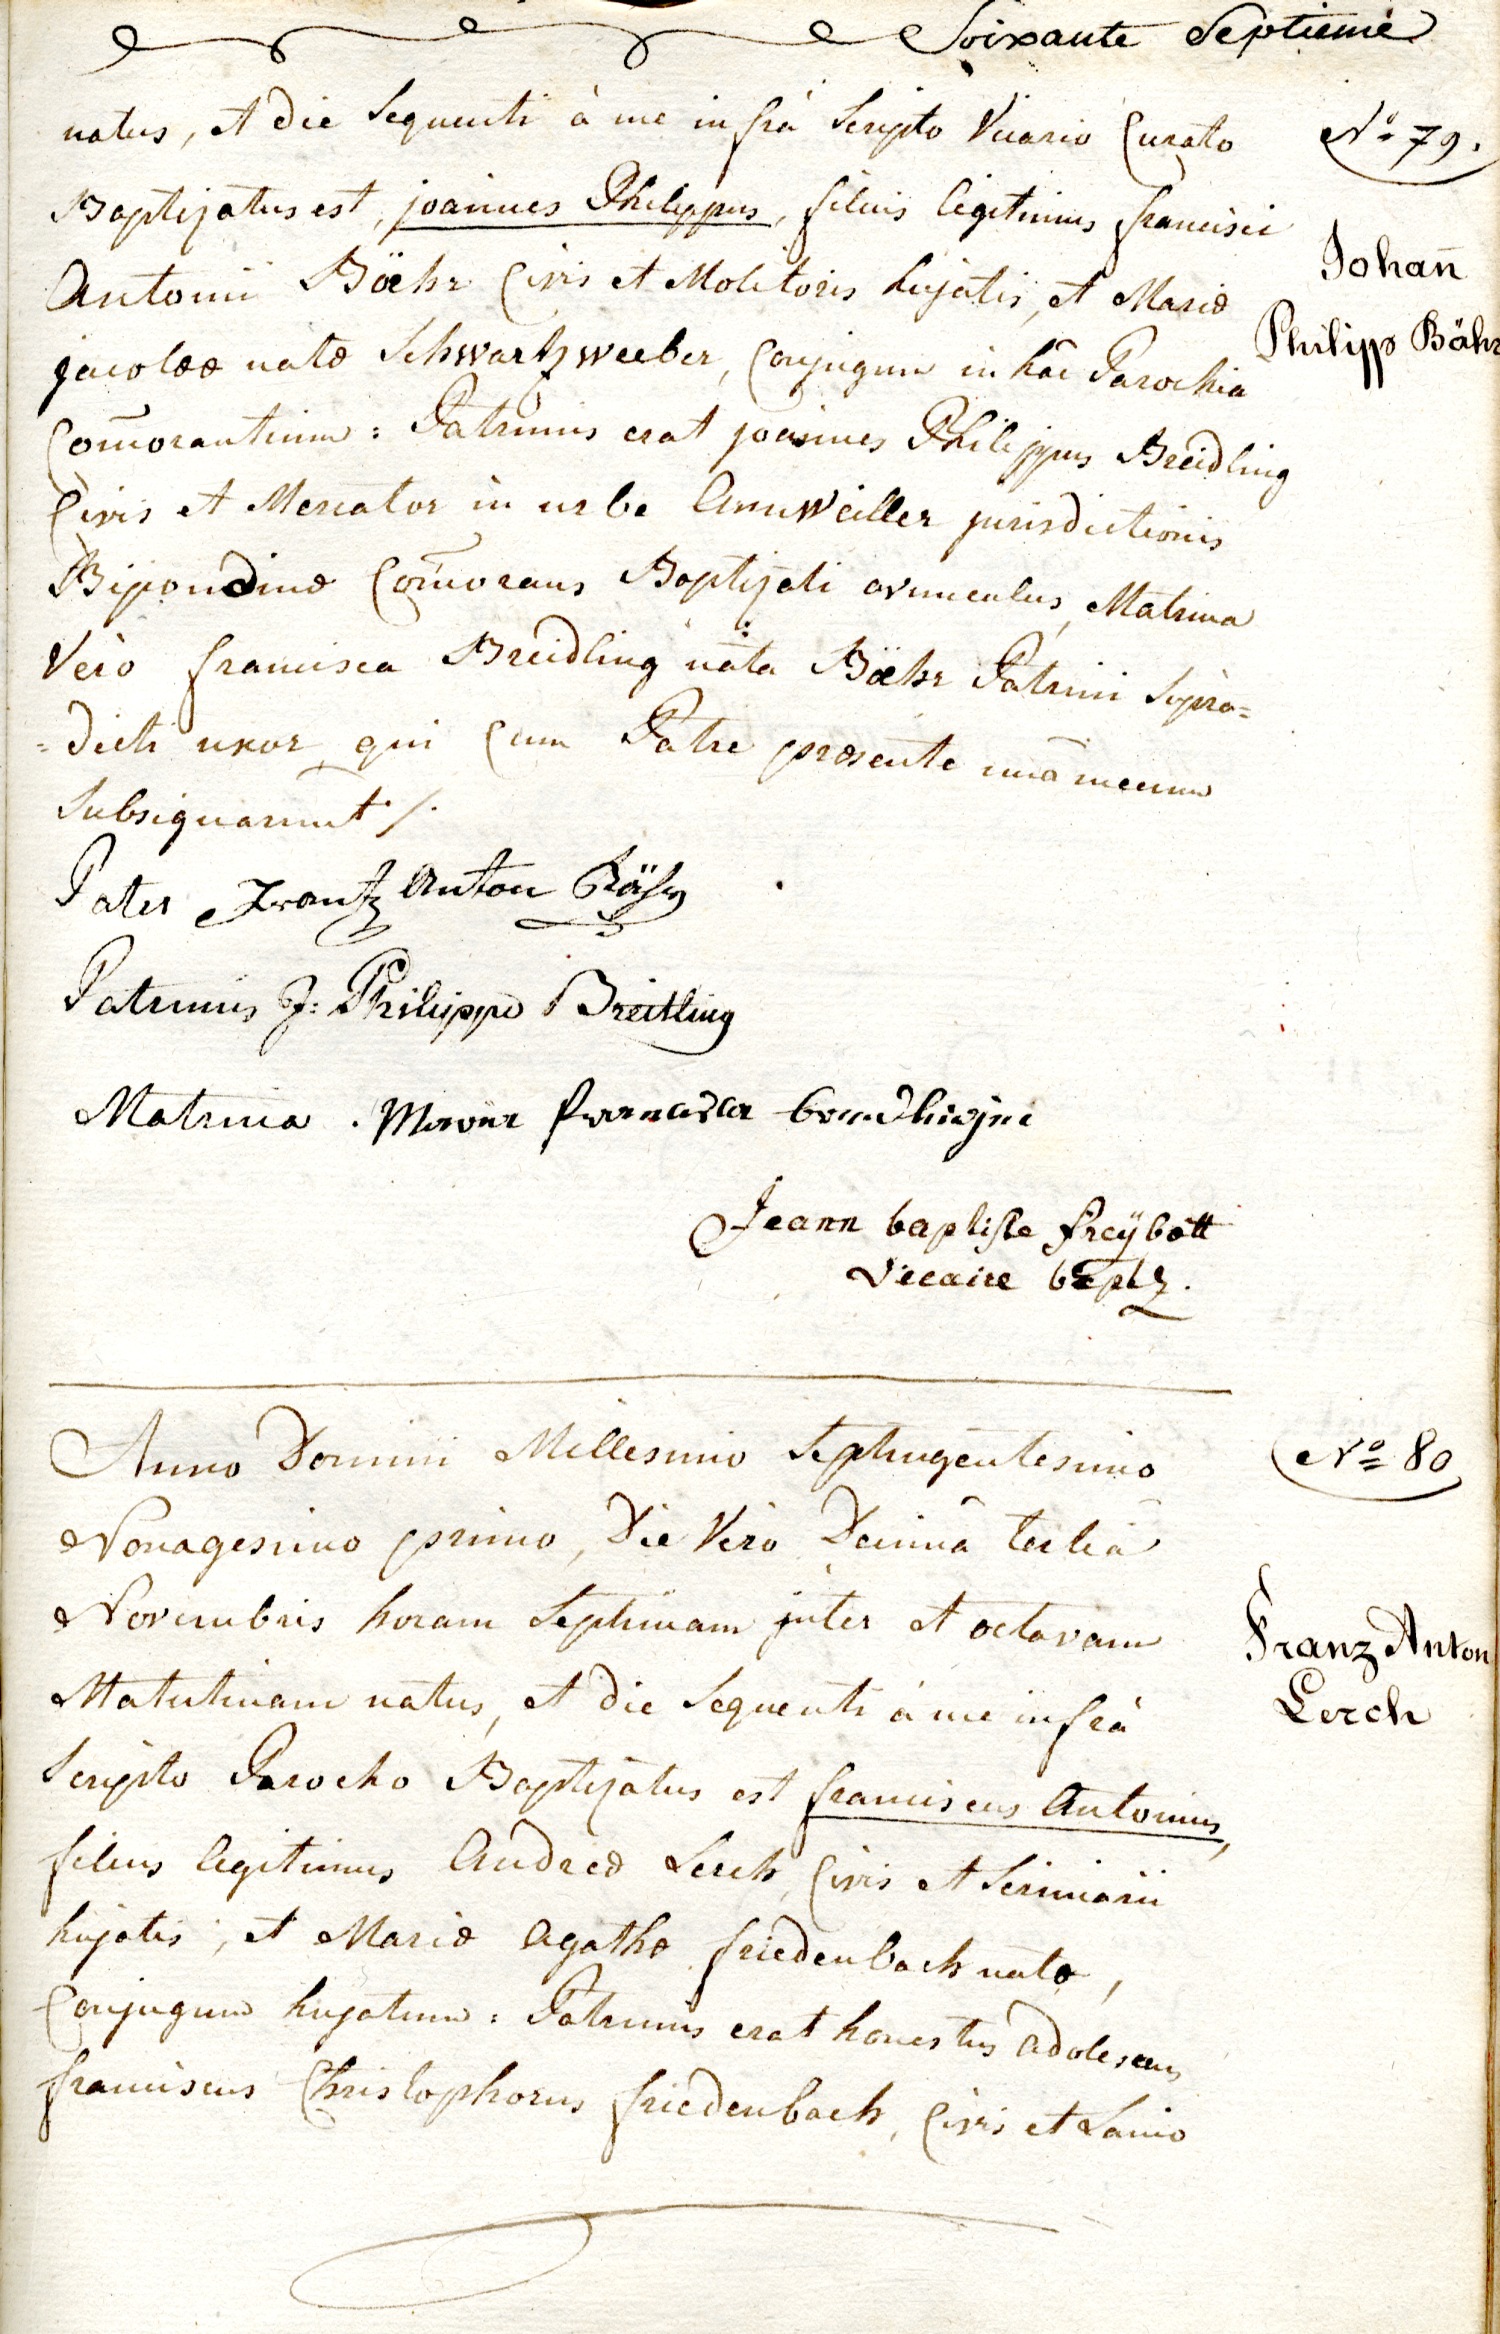 Soixante Septieme
natus, et die Sequenti à me infrà Scripto Vicario Curato
Baptizatus est, joannes Philippus, filius legitimus francisci
Antonii Bäehr Civis et Molitoris hujatis, et Mariæ
jacobææ natæ Schwartzweeber, Conjugum in hâc Parochiâ
Com̄orantium: Patrinus erat joannes Philippus Breidling
Civis et Mercator in urbe Annweiller jurisdictionis
Bipondinæ Com̄orans Baptizati avunculus, Matrina
Verò francisca Breidling nata Bäehr Patrini Supra=
=dicti uxor, qui Cum Patre præsente unà mecum
Subsignarunt ./.
Pater Frantz Anton Bähr
Patrinus J: Philippe Breitling
Matrina . Maria francisca
Jeann baptiste freÿbott
Vicaire
Anno Domini Millesimo Septingentesimo
Nonagesimo primo, Die Verò Decimâ tertiâ
Novembris horam Septimam inter et octavam
Matutinam natus, et die Sequenti à me infrà
Scripto Parocho Baptizatus est franciscus Antonius,
filius legitimus Andreæ Lerch, Civis et Scriniarii
hujatis, et Mariæ Agathæ friedenbach natæ,
Conjugum hujatum: Patrinus erat honestus adolescens
franciscus Christophorus friedenbach, Civis et Lanio
No 79.
Johan̄
Philipp Bähr
No 80
Franz Anton
Lerch